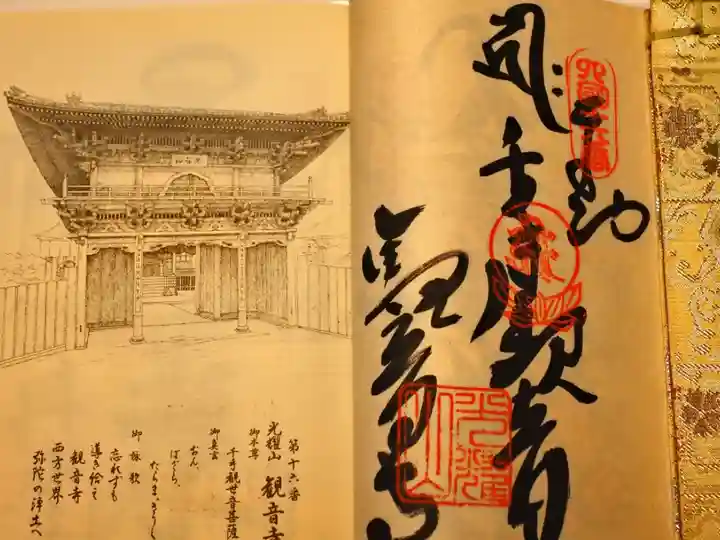 第十六番
光耀山 観音寺
御本尊
千手観世音菩薩
御真言
おん、
ばざら、
たらま、きりく
御詠歌
忘れずも
導き給え
観音寺
西方世界
弥陀の浄土へ
奉拝
千手観音
観音寺
光耀山